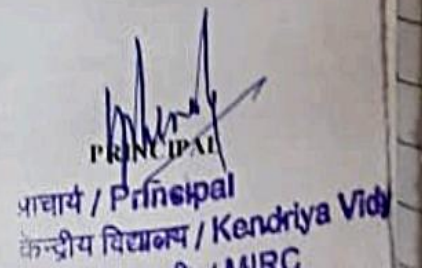 PRINCIPAL
प्राचार्य / Principal
केन्द्रीय विद्यालय / Kendriya Vidy
/ MIRC